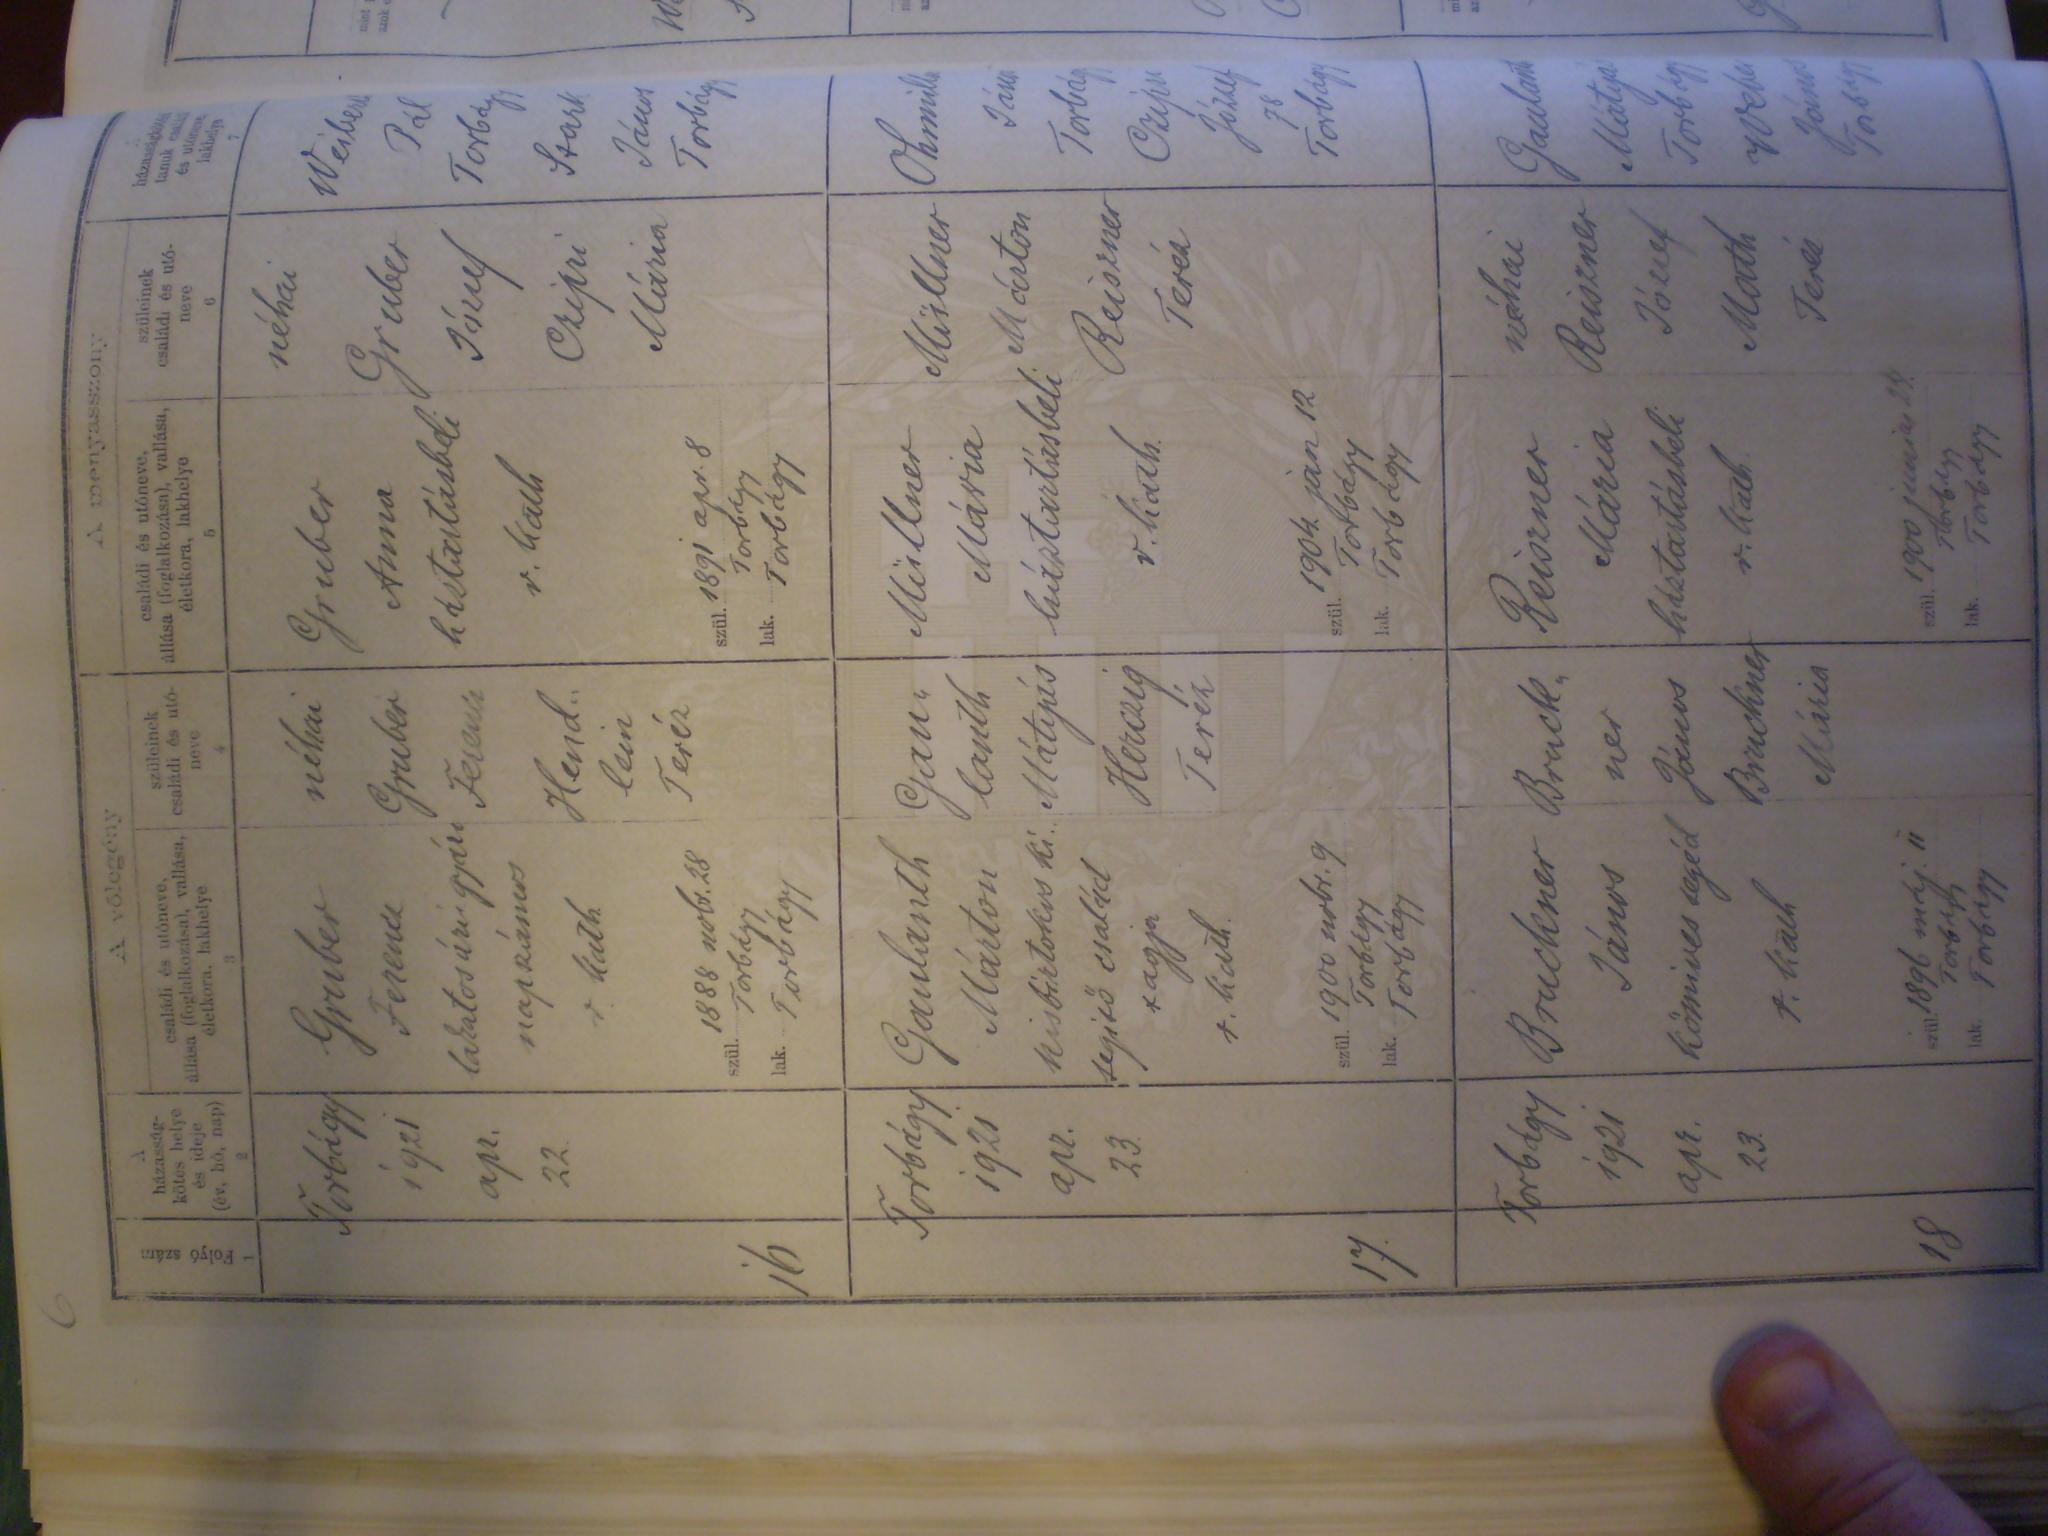 6
A vőlegény
A menyasszony
Folyó szám
1
A
házasság-
kötés helye
és ideje
(év, hó, nap)
2
családi és utóneve,
állása (foglalkozása), vallása,
életkora, lakhelye
3
szüleinek
családi és utó-
neve
4
családi és utóneve,
állása (foglalkozása), vallása,
életkora, lakhelye
5
szüleinek
családi és utó-
neve
6
tanuk családi
és utóneve,
lakhelye
7
16
Torbágy
1921
apr.
22.
Gruber
Ferencz
napszámos
r. kath.
szül. 1888 nobr. 28
Torbágy
lak. Torbágy
néhai
Gruber
Ferencz
Hend-
lein
Teréz
Gruber
Anna
háztartásbeli
r. kath
szül. 1891 apr. 8
Torbágy
lak. Torbágy
néhai
Gruber
József
Czipri
Mária
Pál
Torbágy
Stark
János
Torbágy
17.
Torbágy
1921
apr.
23.
Gaulanth
Márton
kisbirtokos ki-
segitő család
tagja
r. kath.
szül. 1900 nobr. 9
Torbágy
lak. Torbágy
Gau-
lanth
Mátyás
Herczig
Teréz
Müllner
Mária
háztartásbeli
r. kath.
szül. 1904. jan 12
Torbágy
lak. Torbágy
Müllner
Márton
Reiszner
Teréz
János
Torbágy
Czipri
József
78
Torbágy
18
Torbágy
1921
apr.
23.
Bruckner
János
kőmives segéd
r. kath
szül. 1896 máj. 11
Torbágy
lak. Torbágy
Bruck-
ner
János
Bruckner
Mária
Reiszner
Mária
háztartásbeli
r. kath.
szül. 1900 junius 24.
Torbágy
lak. Torbágy
néhai
Reiszner
József
Math
Teréz
Gaulanth
Mátyás
Torbágy
Weber
János
Torbágy